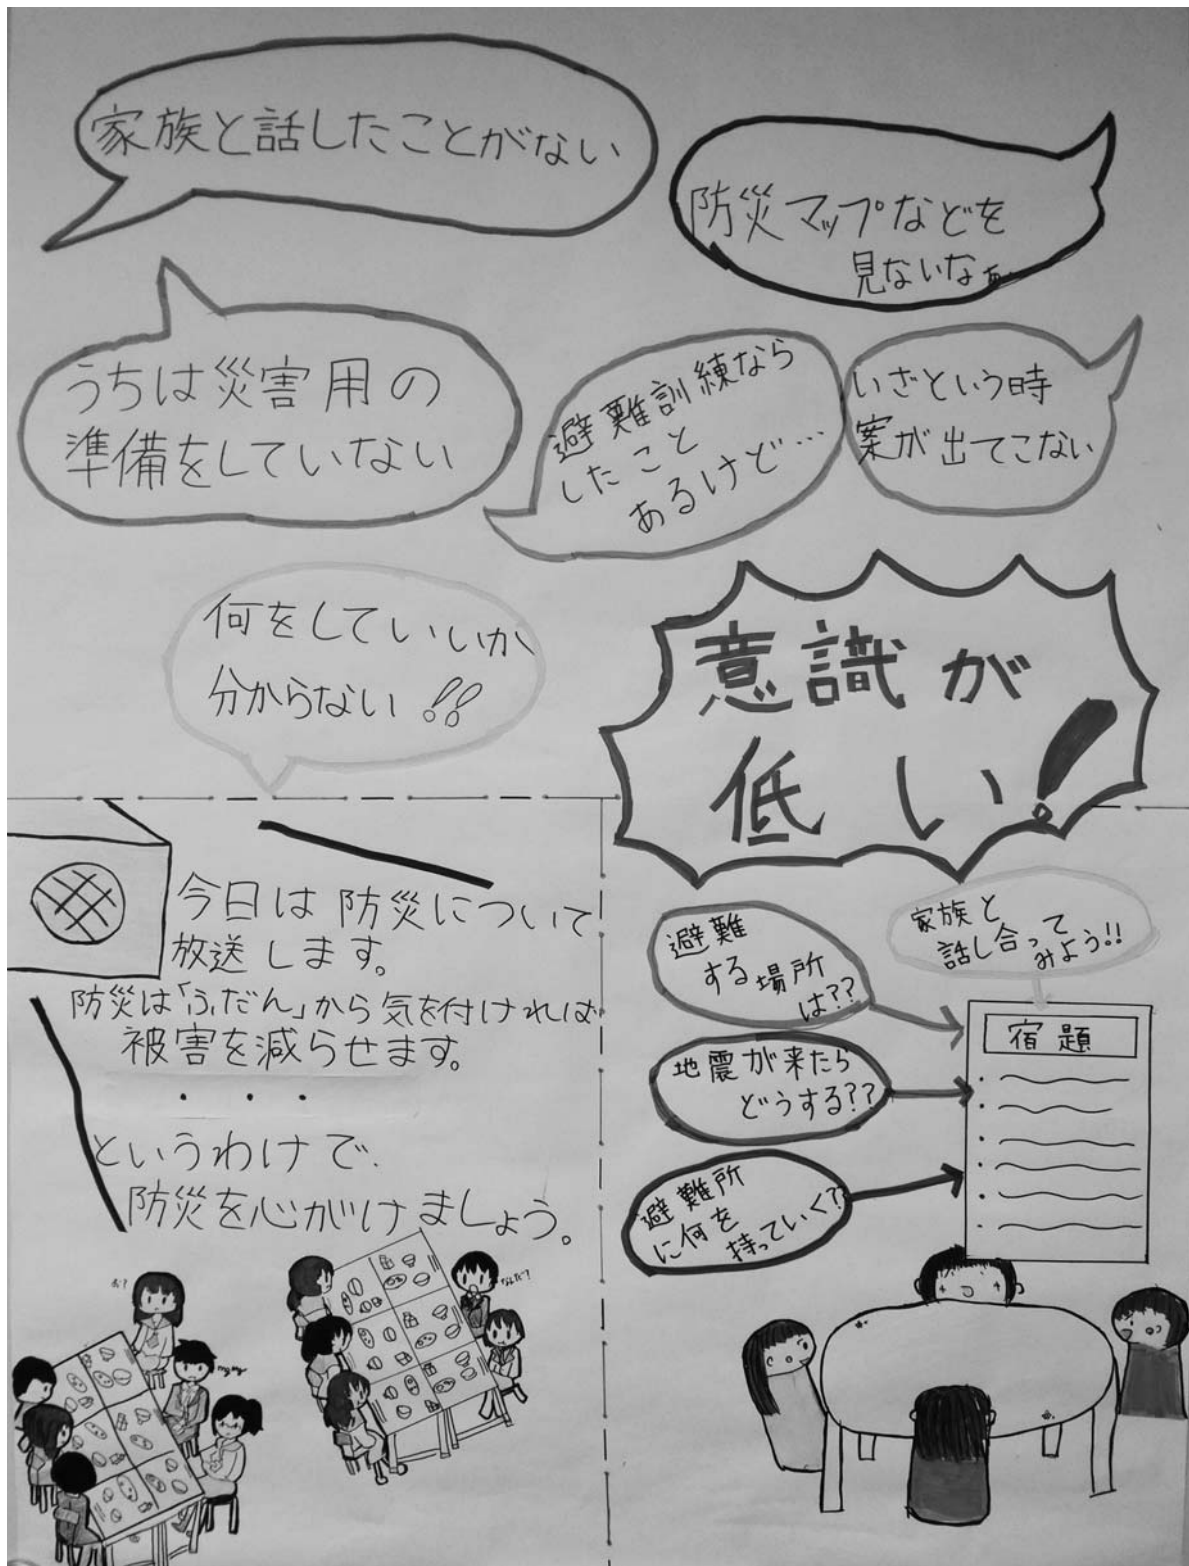 家族と話したことがない
防災マップなどを
見ないなぁ
うちは災害用の
準備をしていない
避難訓練なら
したこと
あるけど…
いざという時
案が出てこない
何をしていいか
分からない!!
意識が
低い!
今日は防災について
放送します。
防災は「ふだん」から気を付ければ
被害を減らせます。
・・・
というわけで、
防災を心がけましょう。
避難
する場所
は??
家族と
話し合って
みよう!!
宿題
地震が来たら
どうする??
避難所
に何を
持っていく?
お?
なんだ?